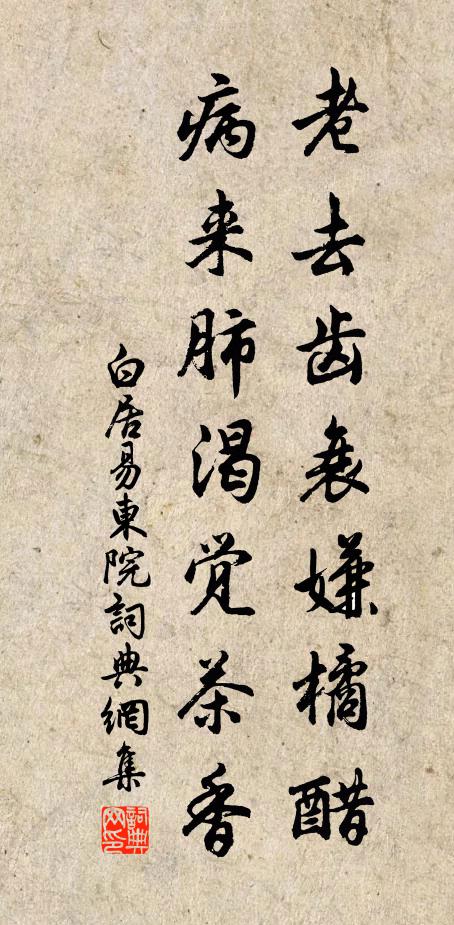 老去齿衰嫌橘醋
病来肺渴觉茶香
白居易東院詞典網集
詞典网印